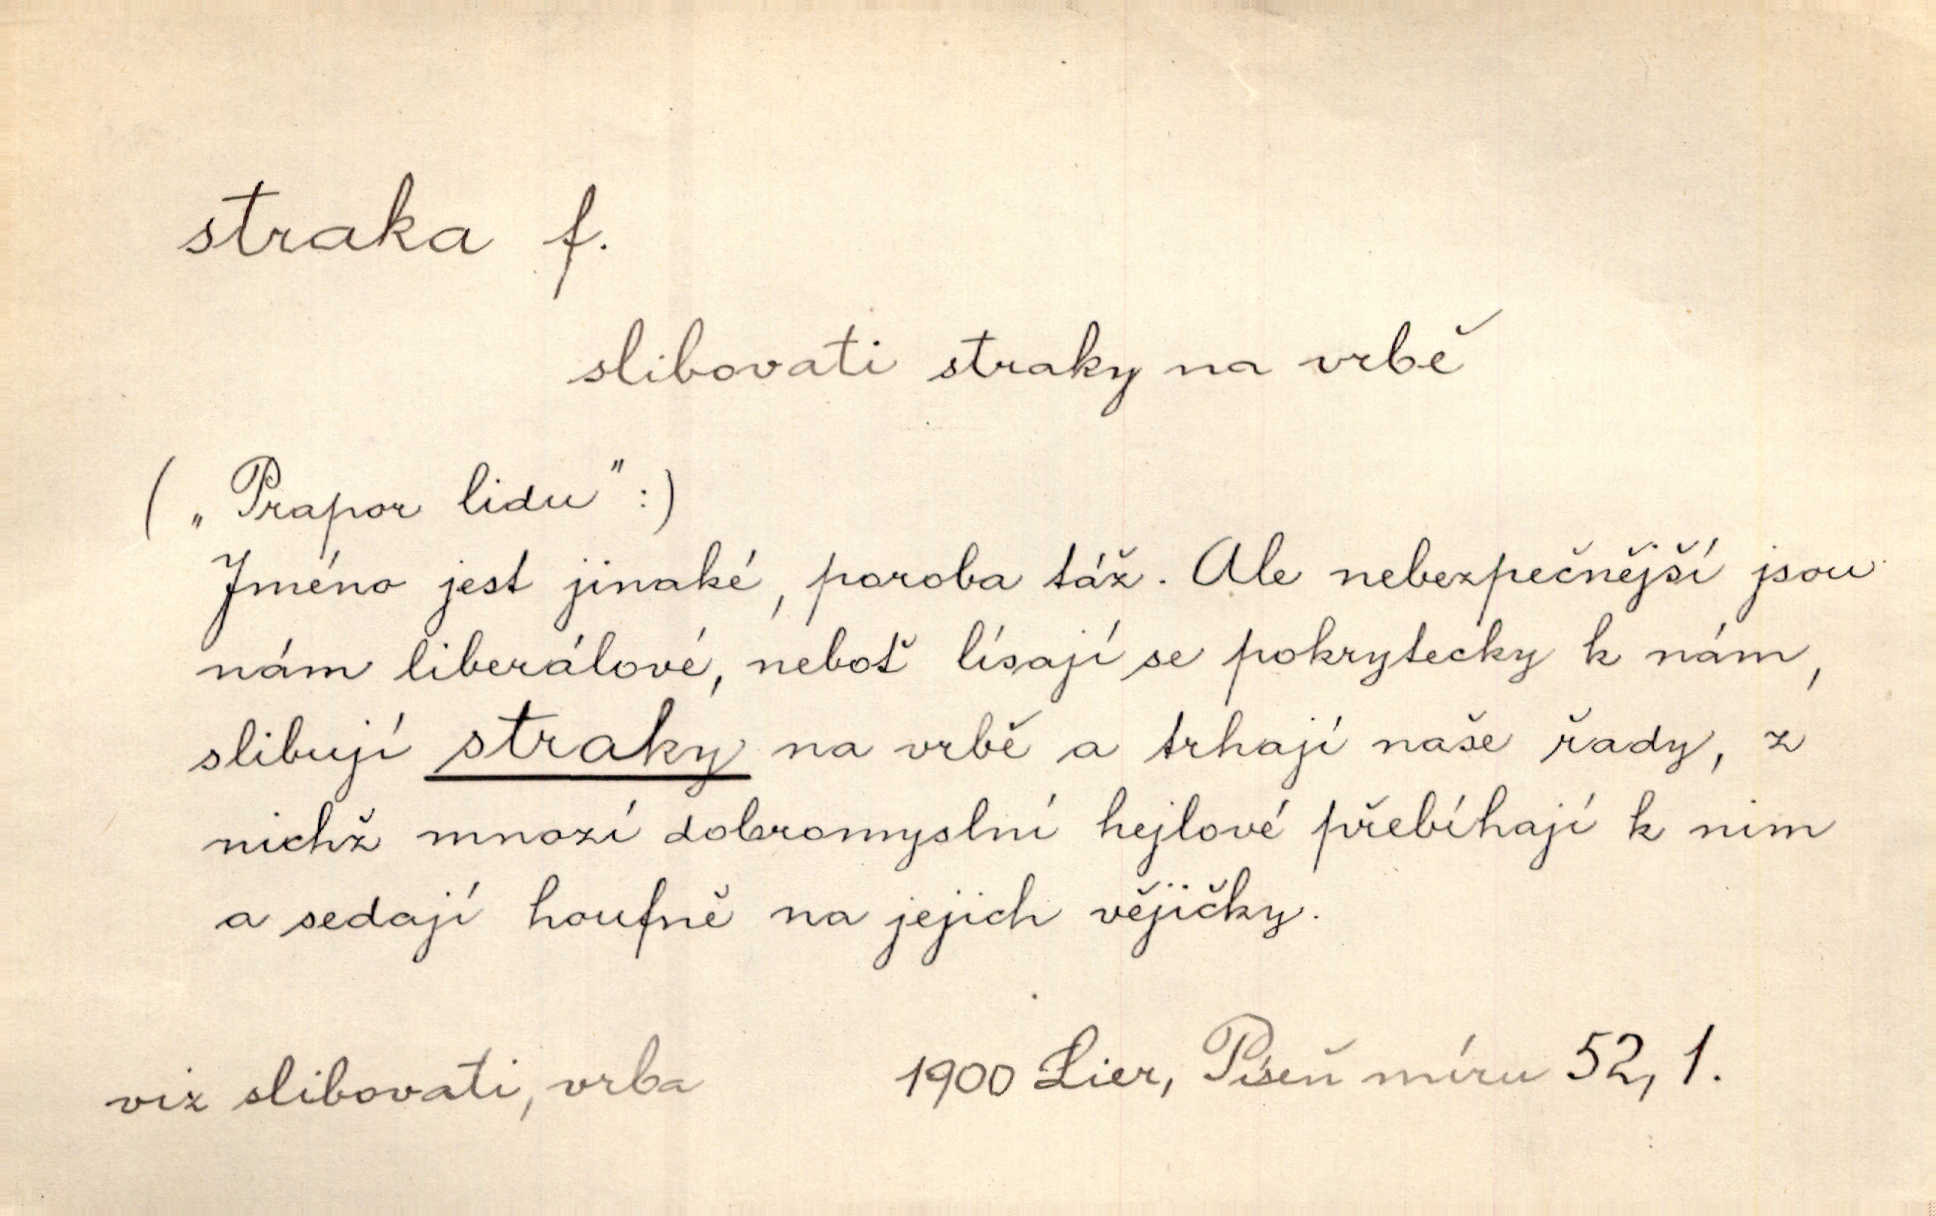 straka f.
slibovati straky na vrbě
(„Prapor lidu“:)
Jméno jest jinaké, poroba táž. Ale nebezpečnější jsou
nám liberálové, neboť lísají se pokrytecky k nám,
slibují straky na vrbě a trhají naše řady, z
nichž mnozí dobromyslní hejlové přebíhají k nim
a sedají houfně na jejich vějičky.
viz slibovati, vrba 1900 Lier, Píseň míru 52, 1.